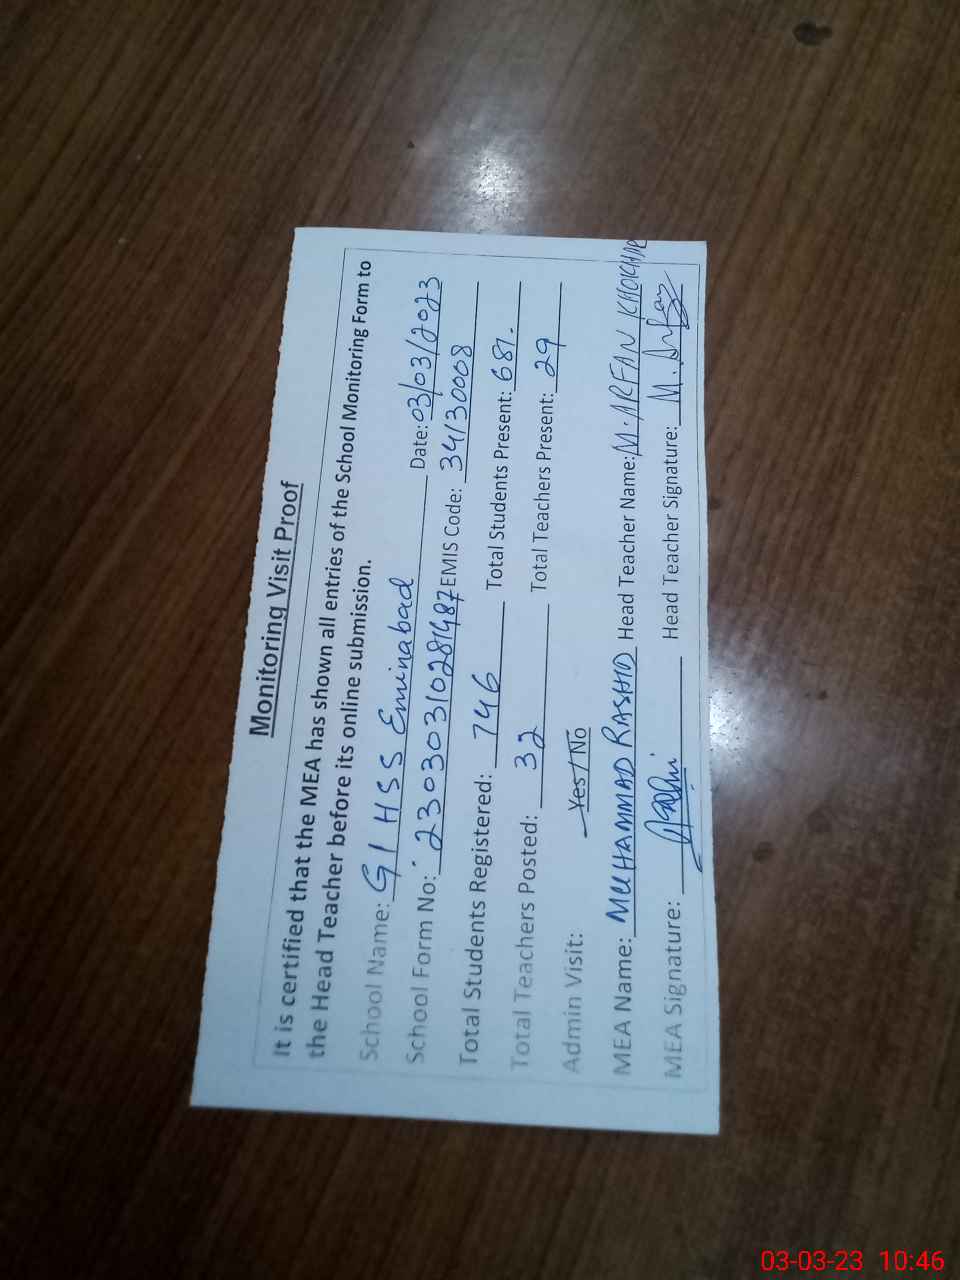 Monitoring Visit Proof
It is certified that the MEA has shown all entries of the School Monitoring Form to
the Head Teacher before its online submission.
School Name: GIHSS Eminabad Date: 03/03/2023
School Form No: 23030310281487 EMIS Code: 34130008
Total Students Registered: 746 Total Students Present: 681.
Total Teachers Posted: 32 Total Teachers Present: 29
Admin Visit: Yes/No
MEA Name: MUHAMMAD RASHID Head Teacher Name: M. ARFAN KHOKHAR
MEA Signature: Head Teacher Signature: M. Arfan
03-03-23 10:46